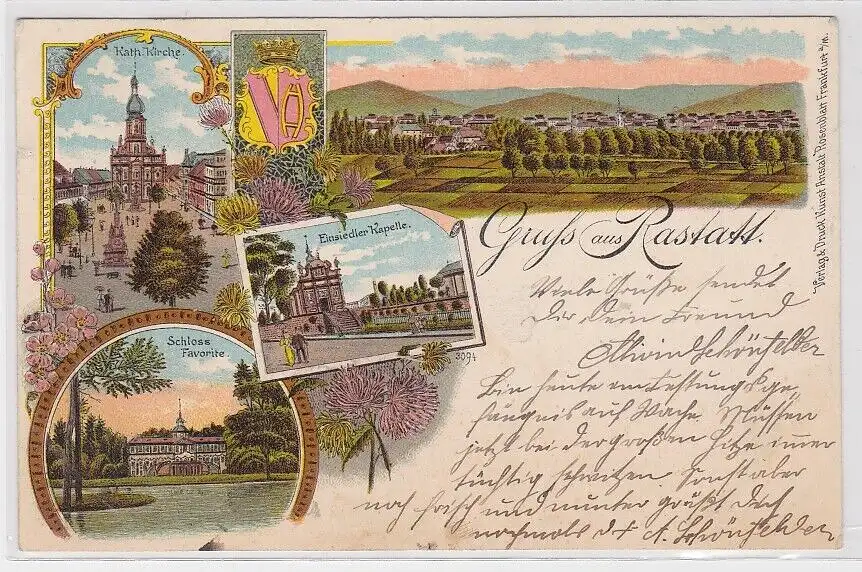 Kath. Kirche.
Einsiedler Kapelle.
3094
Schloss
Favorite.
Gruss aus Rastatt.
Verlag & Druck Kunst Anstalt Rosenblatt Frankfurt a/M.
Viele Grüße sendet
Dir Dein Freund
Alwin Schönfelder
Bin heute im Festungsge-
fängnis auf Wache. Müssen
jetzt bei der großen Hitze immer
tüchtig schwitzen. Sonst aber
noch frisch und munter grüßt Dich
nochmals d. A. Schönfelder